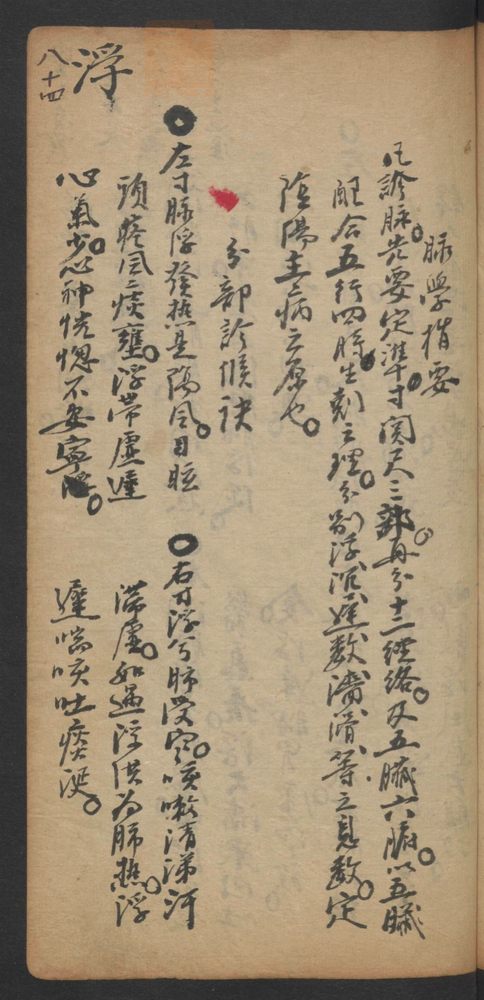 脉學指要
凡診脉先要定準寸関尺三部再分十二經络及五臓六腑以五臓
配合五行四時生剋之理分别浮沉遲数濇滑等之息数定
陰陽主病之原也
分部診候訣
左寸脉浮發热是陽風目眩
頭疼風痰壅浮帶虚遲
心氣少心神恍惚不安寧
右寸浮兮肺受咳嗽清涕汗
帶虚如遇浮洪为肺热浮
遲喘咳吐痰涎
浮
八十四